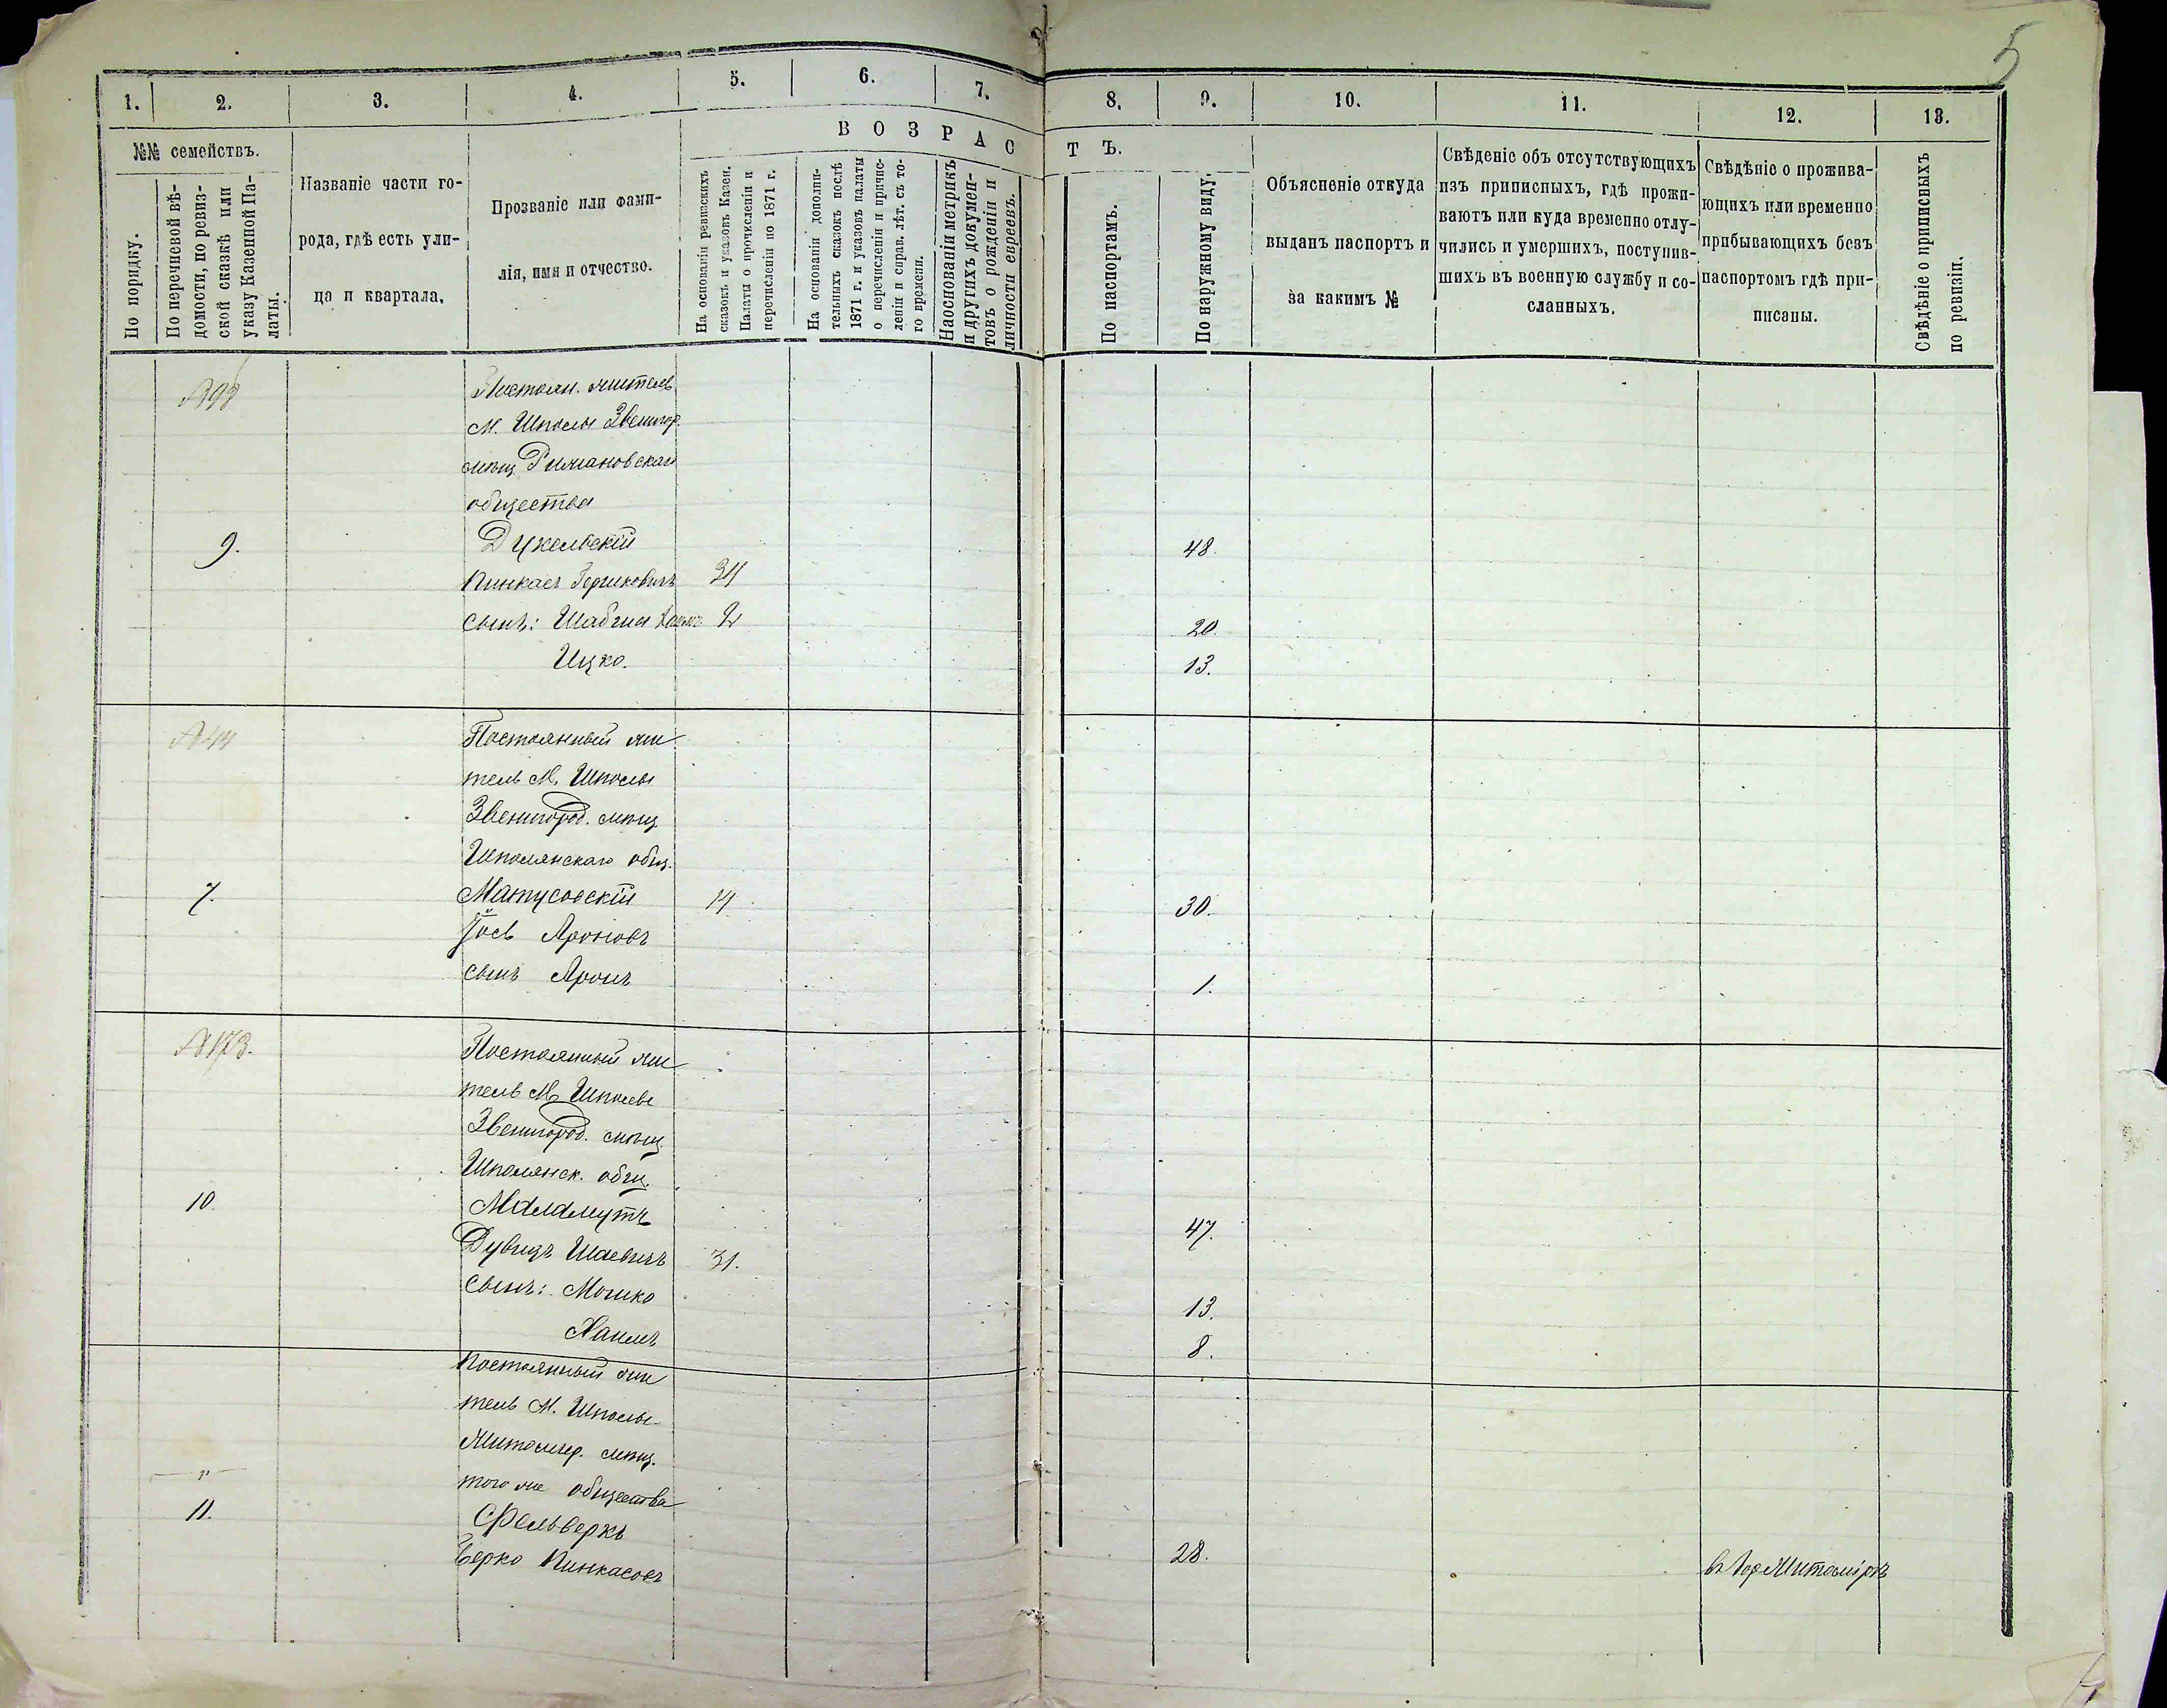 5
1. 2. 3. 4. 5. 6. 7. 8. 9. 10. 11. 12. 13.
В О З Р А С Т Ъ.
№№ семействъ.
По порядку.
По перечневой вѣ-
домости, по ревиз-
ской сказкѣ или
указу Казенной Па-
латы.
Названіе части го-
рода, гдѣ есть ули-
ца и квартала.
Прозваніе или фами-
лія, имя и отчество.
На основаніи ревизскихъ
сказокъ и указовъ Казен.
Палаты о прочкслені и и
перечисленіи по 1871 г.
На основаніи дополни-
тельныхъ сказокъ послѣ
1871 г. и указовъ палаты
о перечисленіи и причис-
леніи и справ. лѣт. съ то-
го времени.
На основаніи метрикъ
и другихъ докумен-
товъ о рожденіи и
личности евреевъ.
По паспортамъ.
По наружному виду.
Объясненіе откуда
выданъ паспортъ и
за какимъ №
Свѣденіе объ отсутствующихъ
изъ приписныхъ, гдѣ прожи-
ваютъ или куда временно отлу-
чились и умершихъ, поступив-
шихъ въ военную службу и со-
сланныхъ.
Свѣдѣніе о прожива-
ющихъ или временно
прибывающихъ безъ
паспортомъ гдѣ при-
писаны.
Свѣдѣніе о приписныхъ
по ревизіи.
Постоян. житель
М. Шполы Звенигор.
мѣщ. Рыжановскаго
общества
9. Дукельскій 48.
Пинкасъ Гершковичъ 34
сынъ: Шабшa 2 20.
Ицко. 13.
№ 44 Постоянный жи
тель М. Шполы
Звенигород. мѣщ.
Шполянскаго общ.
7. Матусовскій 14 30.
Іось Ароновъ
сынъ Аронъ 1.
№ 173. Постоянный жи
тель М. Шполы
Звенигород. мѣщ.
Шполянск. общ.
10. Маламутъ 47.
Дувидъ Шаевичъ 31.
сынъ: Мошко 13.
Хаимъ 8.
Постоянный жи
тель М. Шполы
Житомир. мѣщ.
—"— того же общества
11. Фельверкъ
Берко Пинкасовъ 28. въ гор Житомірѣ